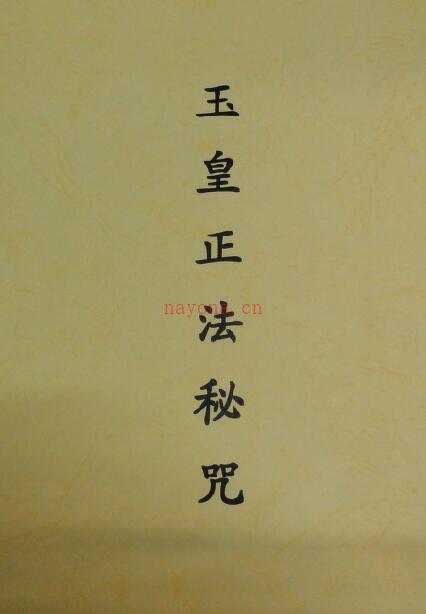 玉皇正法秘咒
nayona.cn